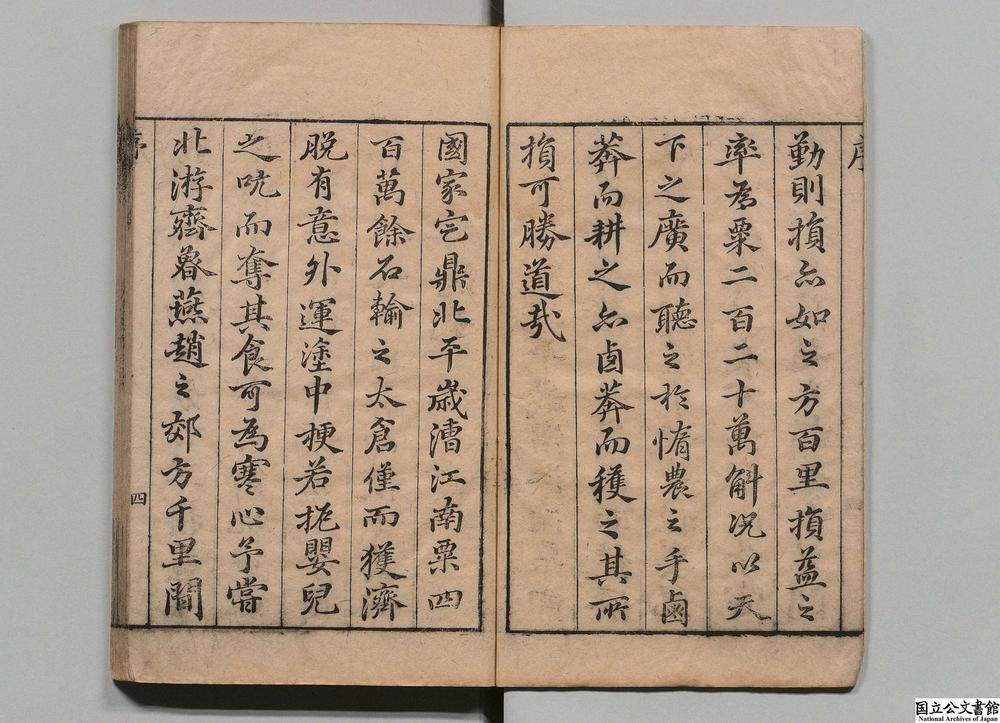 序
勤則損亦如之方百里損益之
率為粟二百二十萬斛况以天
下之廣而聽之於惰農之手鹵
莽而耕之亦鹵莽而穫之其所
損可勝道哉
國家定鼎北平歲漕江南粟四
百萬餘石輸之太倉僅而獲濟
脱有意外運塗中梗若扼嬰兒
之吭而奪其食可為寒心予嘗
北游齊魯燕趙之郊方千里間
序
四
国立公文書館
National Archives of Japan